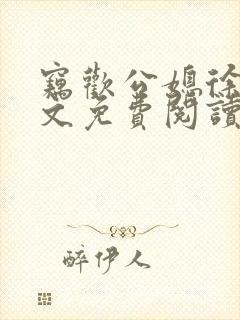 竊歡公媳徐
文免費閱讀
醉伊人